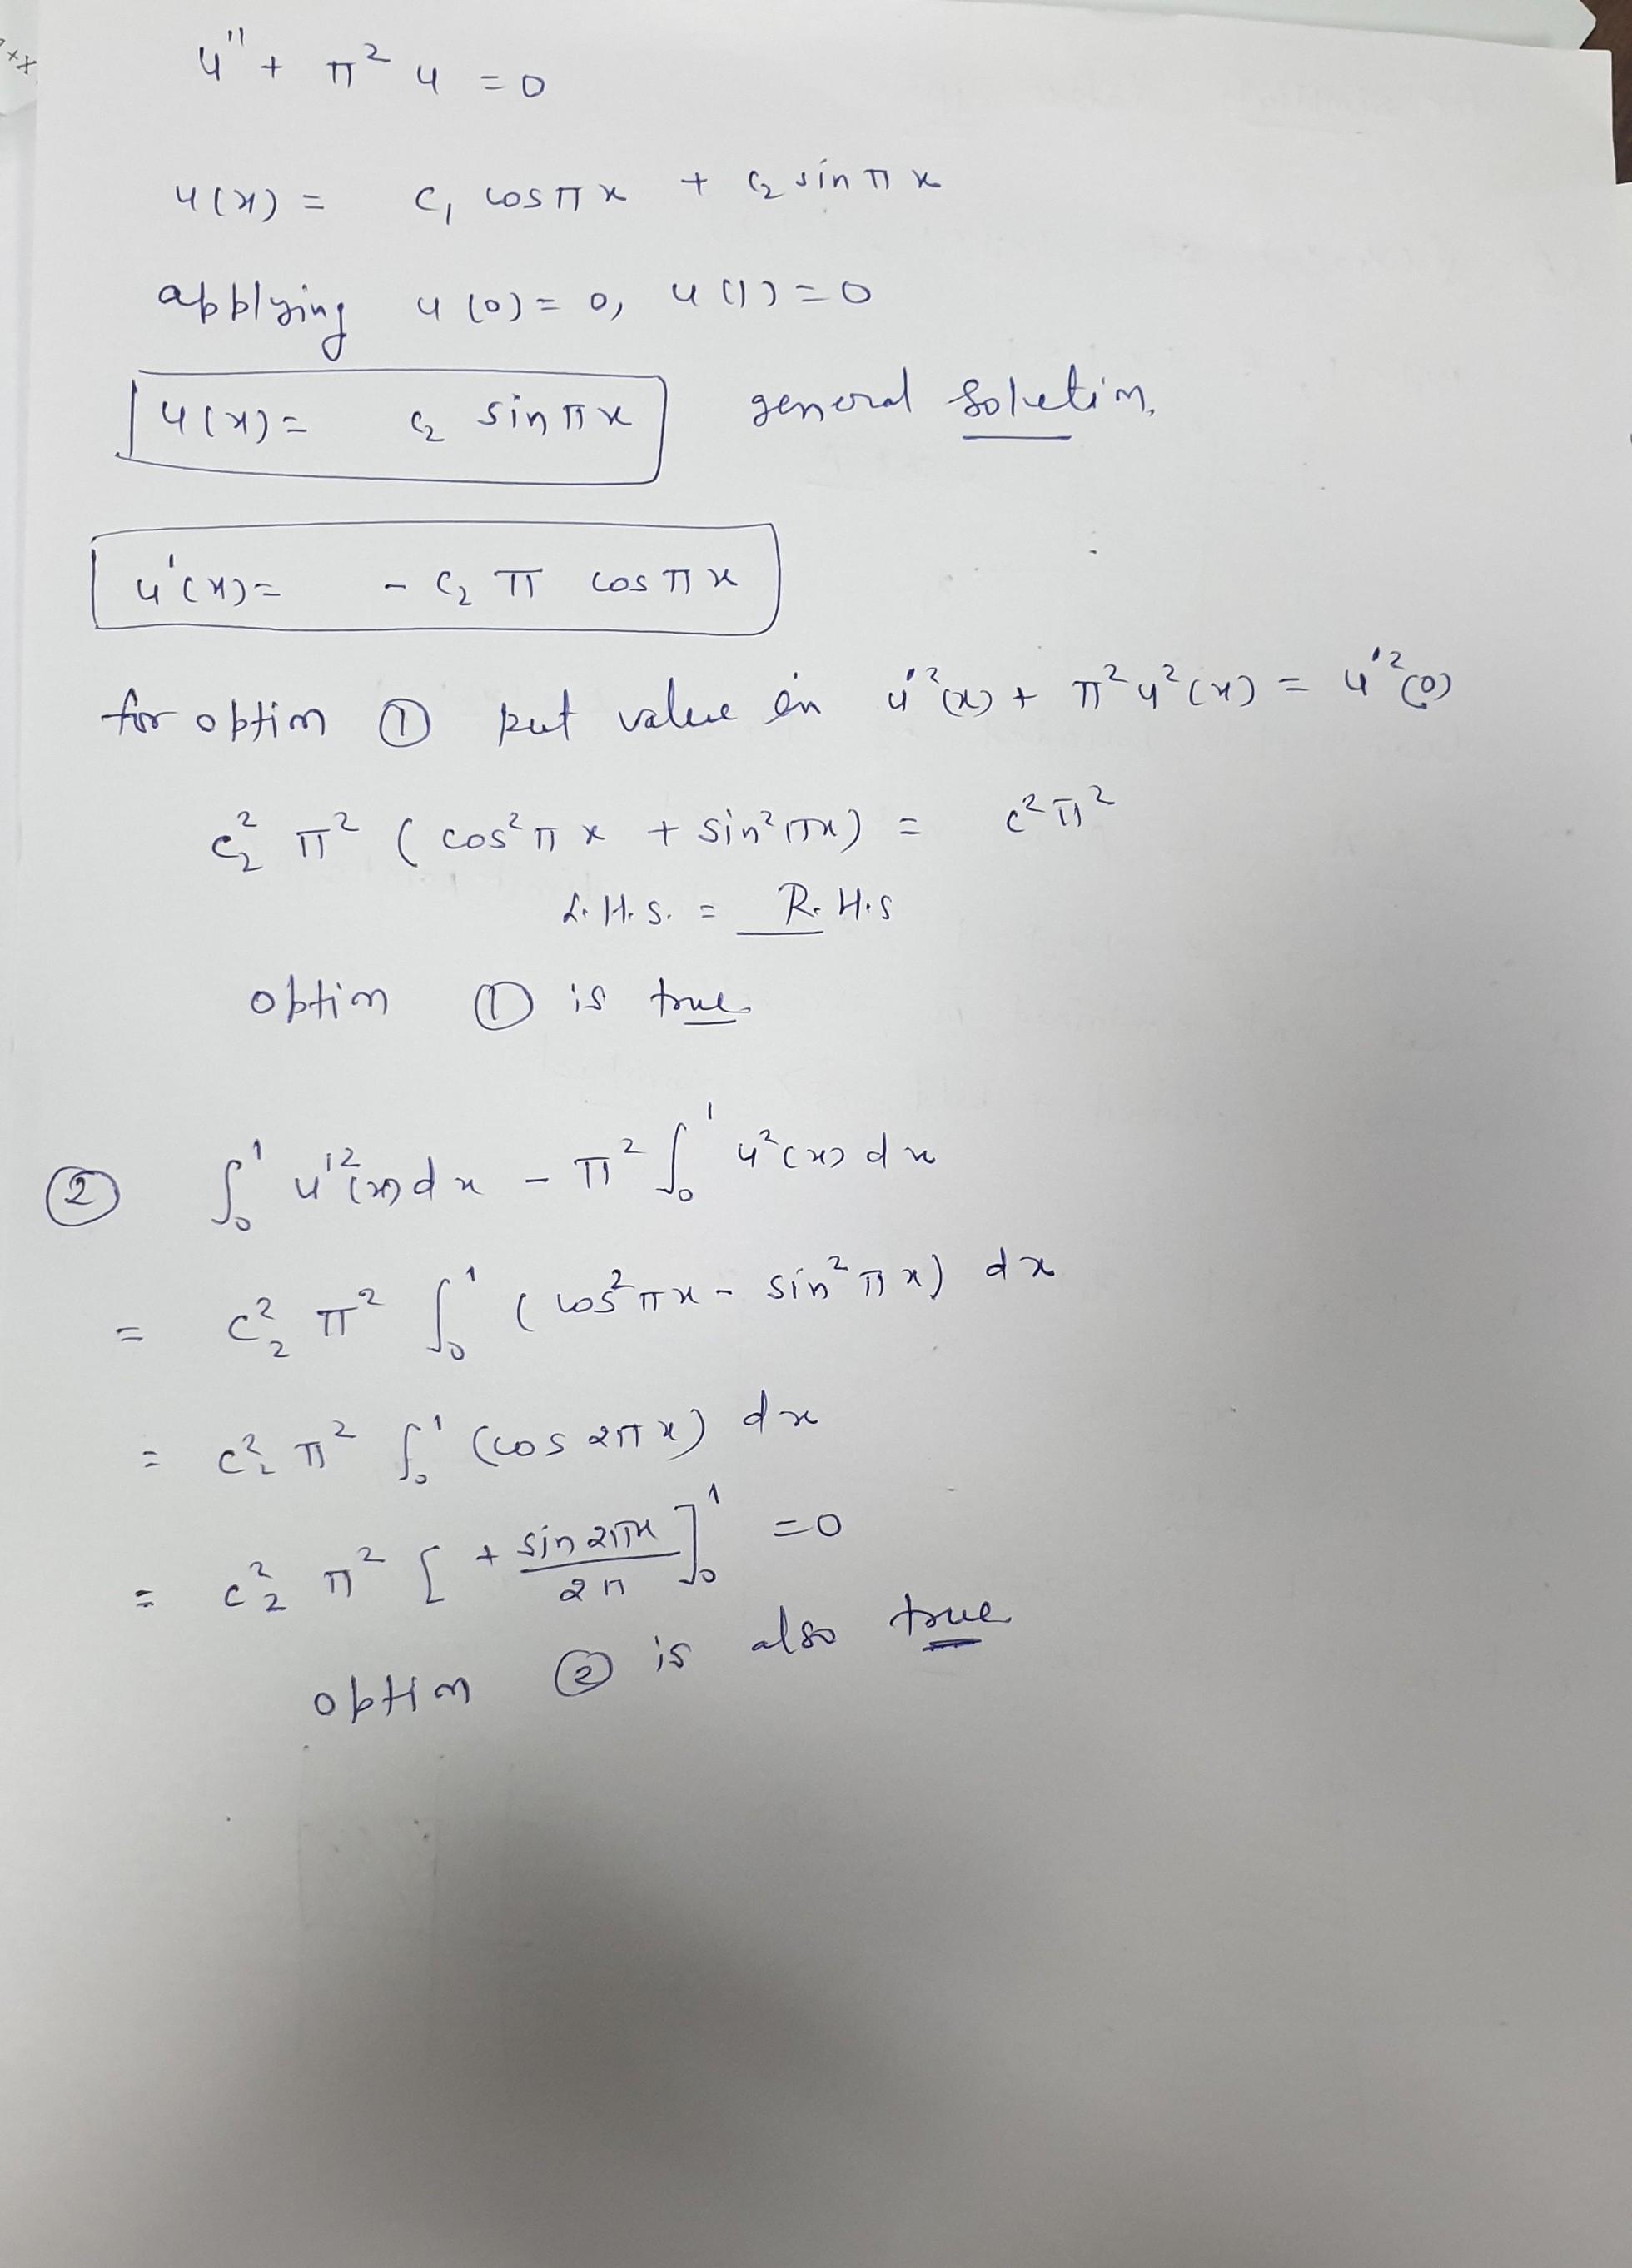 u'' + π² u = 0
u(x) = c₁ cos π x + c₂ sin π x
applying u(0) = 0, u(1) = 0
u(x) = c₂ sin π x general solution.
u'(x) = - c₂ π cos π x
for option ① put value in u'²(x) + π² u²(x) = u'²(0)
c₂² π² ( cos² π x + sin² π x) = c² π²
L.H.S. = R.H.S
option ① is true
② ∫₀¹ u'²(x) dx - π² ∫₀¹ u²(x) dx
= c₂² π² ∫₀¹ ( cos² π x - sin² π x) dx
= c₂² π² ∫₀¹ (cos 2π x) dx
= c₂² π² [ + sin 2πx / 2π ]₀¹ = 0
option ② is also true